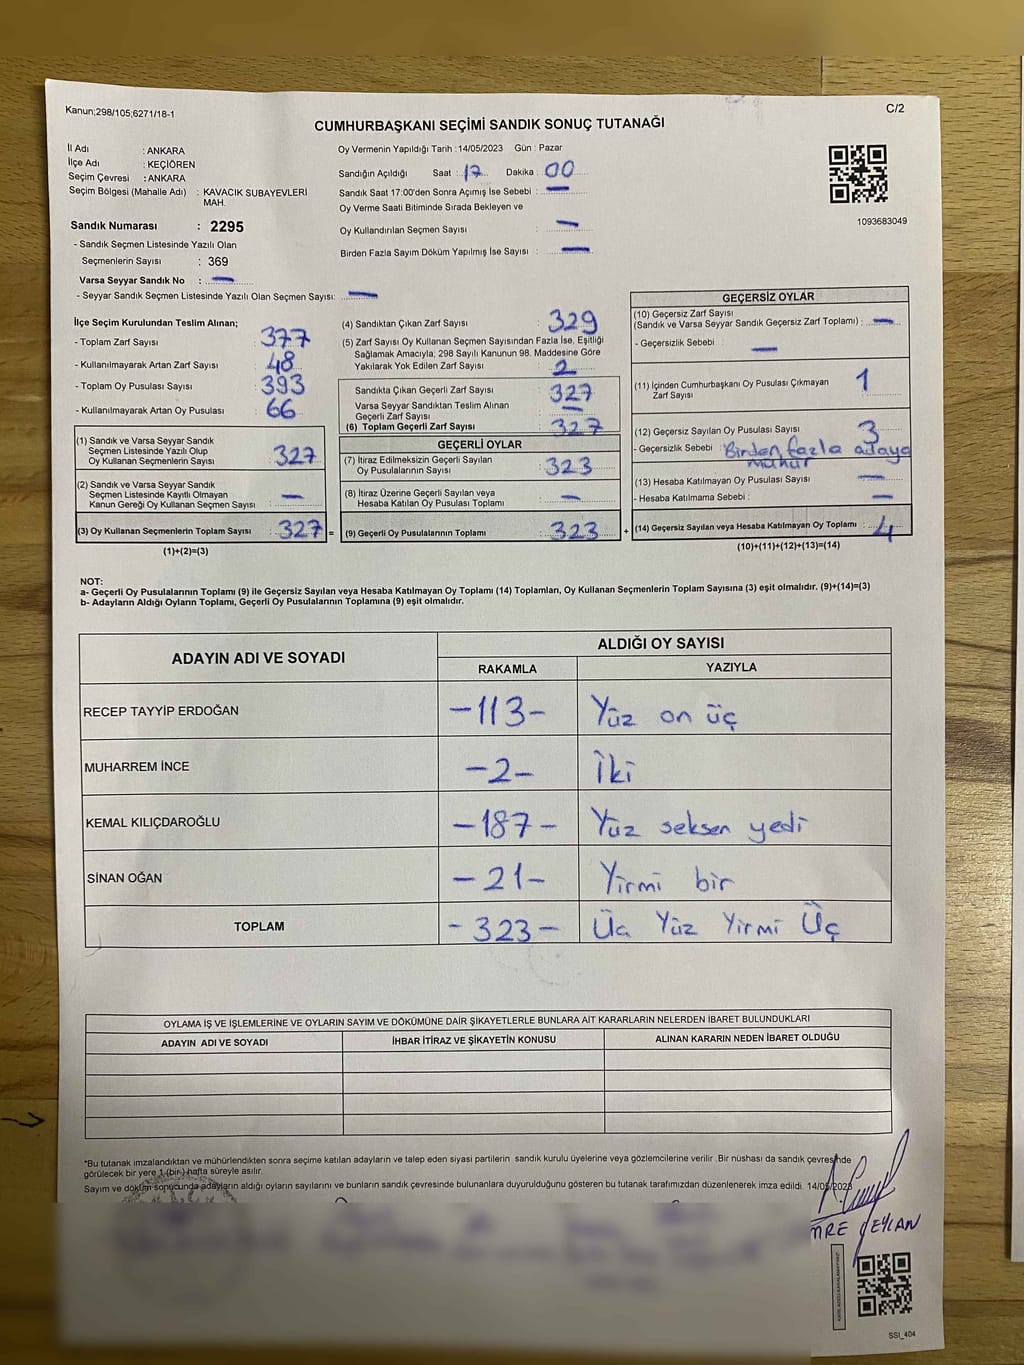 Kanun;298/105;6271/18-1
C/2
CUMHURBAŞKANI SEÇİMİ SANDIK SONUÇ TUTANAĞI
İl Adı : ANKARA
İlçe Adı : KEÇİÖREN
Seçim Çevresi : ANKARA
Seçim Bölgesi (Mahalle Adı) : KAVACIK SUBAYEVLERİ
MAH.
Sandık Numarası : 2295
- Sandık Seçmen Listesinde Yazılı Olan
Seçmenlerin Sayısı : 369
Varsa Seyyar Sandık No : —
- Seyyar Sandık Seçmen Listesinde Yazılı Olan Seçmen Sayısı: —
Oy Vermenin Yapıldığı Tarih :14/05/2023 Gün : Pazar
Sandığın Açıldığı Saat : 17 Dakika : 00
Sandık Saat 17:00'den Sonra Açımış İse Sebebi : —
Oy Verme Saati Bitiminde Sırada Bekleyen ve
Oy Kullandırılan Seçmen Sayısı : —
Birden Fazla Sayım Döküm Yapılmış İse Sayısı : —
1093683049
İlçe Seçim Kurulundan Teslim Alınan;
- Toplam Zarf Sayısı : 377
- Kullanılmayarak Artan Zarf Sayısı : 48
- Toplam Oy Pusulası Sayısı : 393
- Kullanılmayarak Artan Oy Pusulası : 66
(1) Sandık ve Varsa Seyyar Sandık
Seçmen Listesinde Yazılı Olup
Oy Kullanan Seçmenlerin Sayısı : 327
(2) Sandık ve Varsa Seyyar Sandık
Seçmen Listesinde Kayıtlı Olmayan
Kanun Gereği Oy Kullanan Seçmen Sayısı : —
(3) Oy Kullanan Seçmenlerin Toplam Sayısı : 327 =
(1)+(2)=(3)
(4) Sandıktan Çıkan Zarf Sayısı : 329
(5) Zarf Sayısı Oy Kullanan Seçmen Sayısından Fazla İse, Eşitliği
Sağlamak Amacıyla, 298 Sayılı Kanunun 98. Maddesine Göre
Yakılarak Yok Edilen Zarf Sayısı : 2
Sandıkta Çıkan Geçerli Zarf Sayısı : 327
Varsa Seyyar Sandıktan Teslim Alınan
Geçerli Zarf Sayısı : —
(6) Toplam Geçerli Zarf Sayısı : 327
GEÇERLİ OYLAR
(7) İtiraz Edilmeksizin Geçerli Sayılan
Oy Pusulalarının Sayısı : 323
(8) İtiraz Üzerine Geçerli Sayılan veya
Hesaba Katılan Oy Pusulası Toplamı : —
(9) Geçerli Oy Pusulalarının Toplamı : 323 +
GEÇERSİZ OYLAR
(10) Geçersiz Zarf Sayısı
(Sandık ve Varsa Seyyar Sandık Geçersiz Zarf Toplamı) : —
- Geçersizlik Sebebi : —
(11) İçinden Cumhurbaşkanı Oy Pusulası Çıkmayan
Zarf Sayısı : 1
(12) Geçersiz Sayılan Oy Pusulası Sayısı : 3
- Geçersizlik Sebebi : Birden fazla adaya
mühür
(13) Hesaba Katılmayan Oy Pusulası Sayısı : —
- Hesaba Katılmama Sebebi : —
(14) Geçersiz Sayılan veya Hesaba Katılmayan Oy Toplamı : 4
(10)+(11)+(12)+(13)=(14)
NOT:
a- Geçerli Oy Pusulalarının Toplamı (9) ile Geçersiz Sayılan veya Hesaba Katılmayan Oy Toplamı (14) Toplamları, Oy Kullanan Seçmenlerin Toplam Sayısına (3) eşit olmalıdır. (9)+(14)=(3)
b- Adayların Aldığı Oyların Toplamı, Geçerli Oy Pusulalarının Toplamına (9) eşit olmalıdır.
ADAYIN ADI VE SOYADI
ALDIĞI OY SAYISI
RAKAMLA YAZIYLA
RECEP TAYYİP ERDOĞAN -113- Yüz on üç
MUHARREM İNCE -2- İki
KEMAL KILIÇDAROĞLU -187- Yüz seksen yedi
SİNAN OĞAN -21- Yirmi bir
TOPLAM -323- Üç Yüz Yirmi Üç
OYLAMA İŞ VE İŞLEMLERİNE VE OYLARIN SAYIM VE DÖKÜMÜNE DAİR ŞİKAYETLERLE BUNLARA AİT KARARLARIN NELERDEN İBARET BULUNDUKLARI
ADAYIN ADI VE SOYADI İHBAR İTİRAZ VE ŞİKAYETİN KONUSU ALINAN KARARIN NEDEN İBARET OLDUĞU
*Bu tutanak imzalandıktan ve mühürlendikten sonra seçime katılan adayların ve talep eden siyasi partilerin sandık kurulu üyelerine veya gözlemcilerine verilir .Bir nüshası da sandık çevresinde
görülecek bir yere 1 (bir ) hafta süreyle asılır.
Sayım ve döküm sonucunda adayların aldığı oyların sayılarını ve bunların sandık çevresinde bulunanlara duyurulduğunu gösteren bu tutanak tarafımızdan düzenlenerek imza edildi. 14/05/2023
MRE CEYLAN
SSI_404